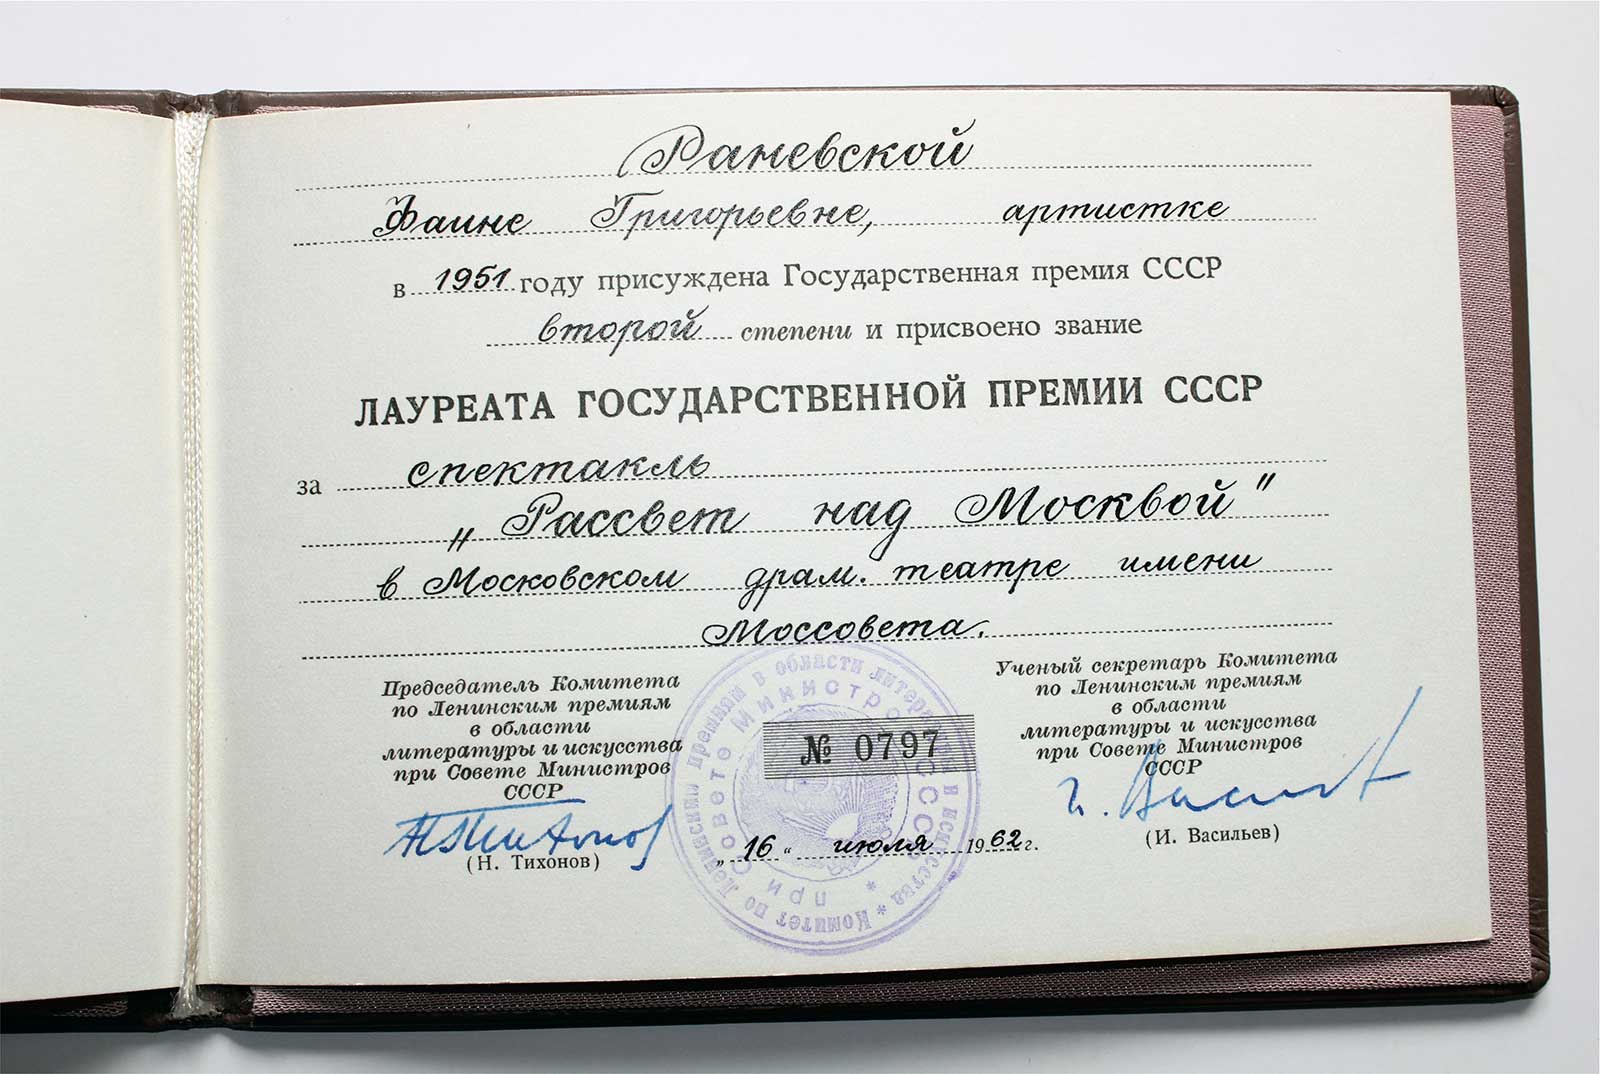 Раневской
Фаине Григорьевне, артистке
в 1951 году присуждена Государственная премия СССР
второй степени и присвоено звание
ЛАУРЕАТА ГОСУДАРСТВЕННОЙ ПРЕМИИ СССР
за спектакль
„Рассвет над Москвой"
в Московском драм. театре имени
Моссовета.
Председатель Комитета
по Ленинским премиям
в области
литературы и искусства
при Совете Министров
СССР
Н Тихонов
(Н. Тихонов)
Комитет по Ленинским премиям в области литературы и искусства *
при Совете Министров СССР *
№ 0797
„16" июля 1962 г.
Ученый секретарь Комитета
по Ленинским премиям
в области
литературы и искусства
при Совете Министров
СССР
И. Васильев
(И. Васильев)